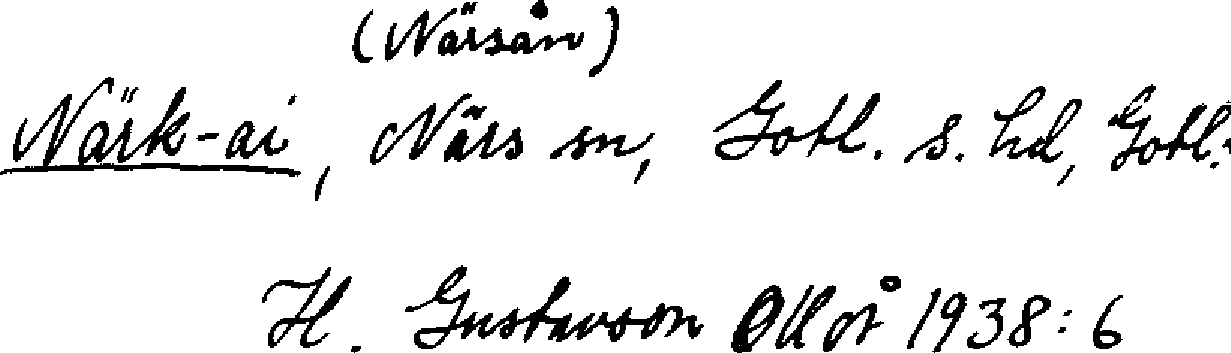 (Närsån)
Närk-ai, Närs sn, Gotl. s. hd, Gotl.
H. Gustavson 1938:6